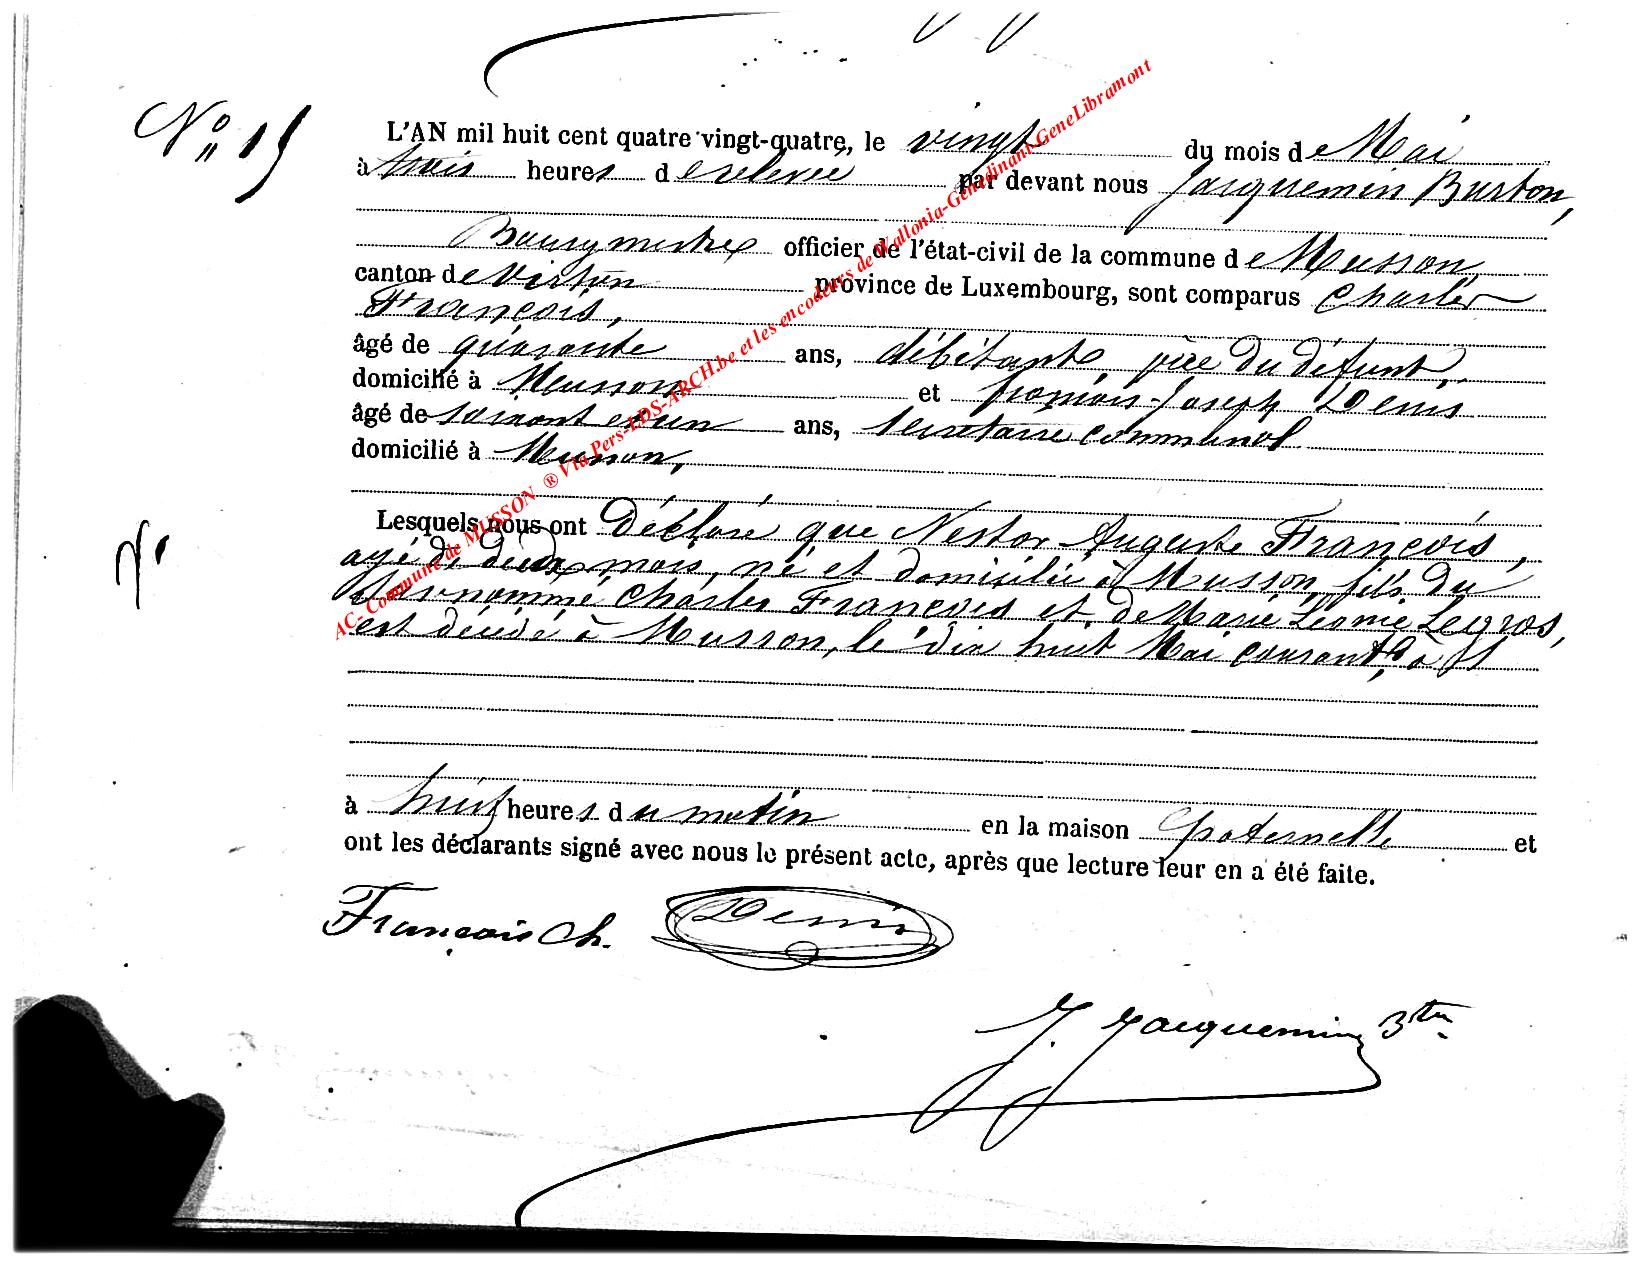 N° 15
L'AN mil huit cent quatre vingt-quatre, le vingt du mois de Mai
à trois heures de relevée par devant nous Jacquemin Burton,
Bourgmestre officier de l'état-civil de la commune de Musson,
canton de Virton province de Luxembourg, sont comparus Charles
François,
âgé de quarante ans, débitante, père du défunt,
domicilié à Musson et françois-Joseph Denis
âgé de soixante et un ans, secrétaire communal
domicilié à Musson,
Lesquels nous ont déclaré que Nestor Auguste François,
agé de deux mois, né et domicilié à Musson, fils du
surnommé Charles François et de Marie Léonie Legros,
est décédé à Musson, le dix huit Mai courant, à
à huit heures du matin en la maison paternelle et
ont les déclarants signé avec nous le présent acte, après que lecture leur en a été faite.
François Ch. Denis
J. Jacquemin Btn
AC- Commune de MUSSON ® Via Pers-LDS-ARCH.be et les encodeurs de Wallonia-Genedinant-GeneLibramont